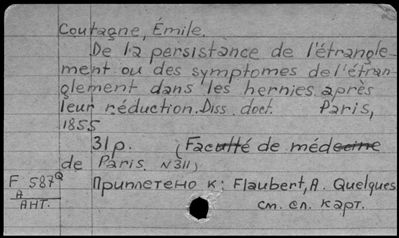 Coutagne, Émile.
De la persistance de l'étrangle-
ment ou des symptomes de l'étran-
glement dans les hernies après
leur réduction. Diss. doct. Paris,
1855
31 p. (Faculté de médecine
de Paris. N 311)
F 587Q Приплетено к: Flaubert, A. Quelques
A
АНТ. см. сл. карт.